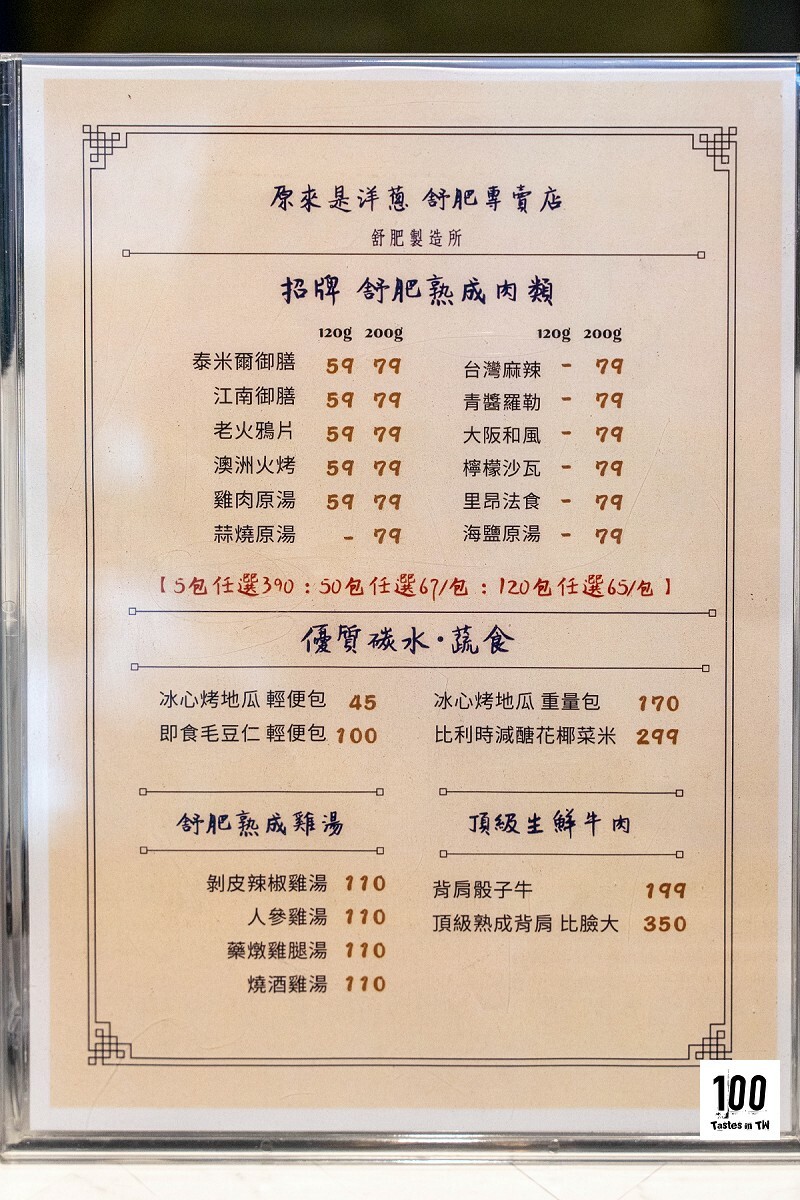 原來是洋蔥 舒肥專賣店
舒肥製造所
招牌 舒肥熟成肉類
120g 200g
泰米爾御膳 59 79
江南御膳 59 79
老火鴉片 59 79
澳洲火烤 59 79
雞肉原湯 59 79
蒜燒原湯 - 79
120g 200g
台灣麻辣 - 79
青醬羅勒 - 79
大阪和風 - 79
檸檬沙瓦 - 79
里昂法食 - 79
海鹽原湯 - 79
【5包任選390:50包任選67/包:120包任選65/包】
優質碳水·蔬食
冰心烤地瓜 輕便包 45
即食毛豆仁 輕便包 100
冰心烤地瓜 重量包 170
比利時減醣花椰菜米 299
舒肥熟成雞湯
剝皮辣椒雞湯 110
人參雞湯 110
藥燉雞腿湯 110
燒酒雞湯 110
頂級生鮮牛肉
背肩骰子牛 199
頂級熟成背肩 比臉大 350
100
Tastes in TW